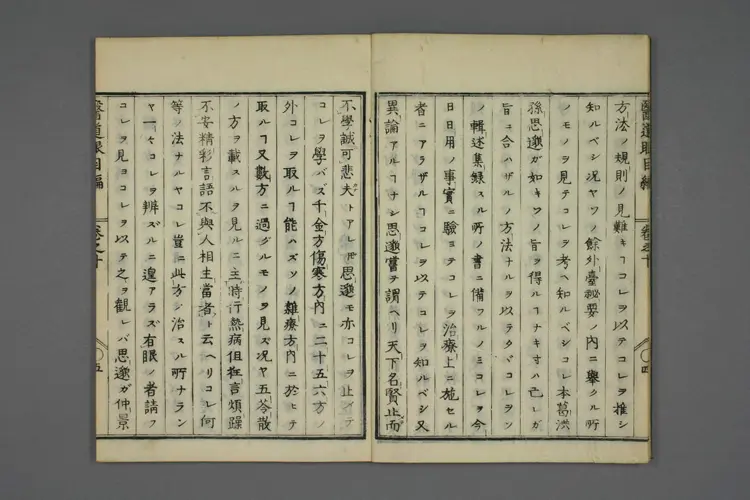 方法ノ規則ノ見難キヿコレヲ以テコレヲ推シ
知ルベシ况ヤソノ餘外臺秘要ノ內ニ舉クル所
ノモノヲ見テコレヲ考ヘ知ルベシコレ本葛洪
孫思邈ガ如キソノ旨ヲ得ルヿナキ寸ハ己レガ
旨ニ合ハザルノ方法ナルヲ以テタヾコレヲソ
ノ輯述集錄スル所ノ書ニ備フルノミコレヲ今
日日用ノ事實ニ驗ヨテコレヲ治療上ニ施セル
者ニアラザルヿコレヲ以テコレヲ知ルベシ又
異論アルヿナシ思邈嘗ヲ謂ヘリ天下名賢止而
醫道眼目編
卷之十
四
不學誠可悲夫トアレ𪜈思邈モ亦コレヲ止イテ
コレヲ學バズ千金方傷寒方內ニ二十五六方ノ
外コレヲ取ルヿ能ハズソノ雜療方內ニ於ヒテ
取ルヿ又數方ニ過グルモノヲ見ズ况ヤ五苓散
ノ方ヲ載スルヲ見ルニ主時行熱病但狂言煩躁
不安精彩言語不與人相主當者ト云ヘリコレ何
等ノ法ナルヤコレ豈ニ此方ノ治スル所ナラン
ヤ一々コレヲ辨ズルニ遑アラズ有眼ノ者請フ
コレヲ見ヨコレヲ以テ之ヲ観レバ思邈ガ仲景
醫道眼目編
卷之十
五